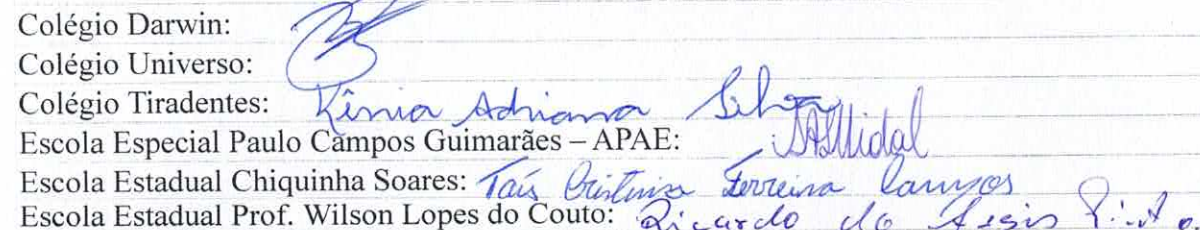 Colégio Darwin:
Colégio Universo:
Colégio Tiradentes: Kênia Adriana Silva
Escola Especial Paulo Campos Guimarães – APAE:
Escola Estadual Chiquinha Soares: Taís Cristina Ferreira Campos
Escola Estadual Prof. Wilson Lopes do Couto: Ricardo de Assis Pinto